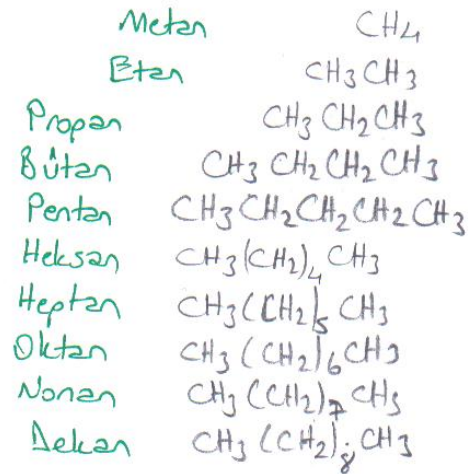 Metan CH4
Etan CH3CH3
Propan CH3 CH2CH3
Bûtan CH3 CH2 CH2 CH3
Pentan CH3CH2CH2CH2CH3
Heksan CH3(CH2)4 CH3
Heptan CH3(CH2)5 CH3
Oktan CH3(CH2)6CH3
Nonan CH3(CH2)7 CH3
Dekan CH3(CH2)8 CH3